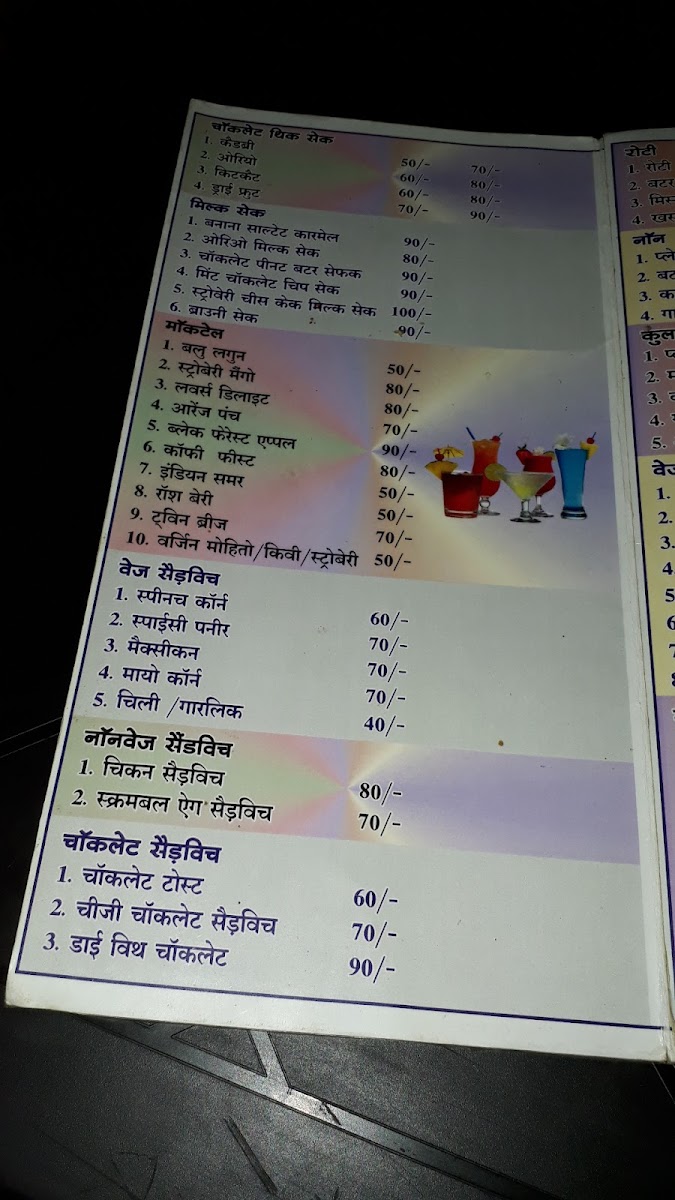 चॉकलेट थिक सेक
1. कॅडब्री 50/- 70/-
2. ओरियो 60/- 80/-
3. किटकॅट 60/- 80/-
4. ड्राई फ्रुट 70/- 90/-
मिल्क सेक
1. बनाना साल्टेट कारमेल 90/-
2. ओरिओ मिल्क सेक 80/-
3. चॉकलेट पीनट बटर सेफक 90/-
4. मिंट चॉकलेट चिप सेक 90/-
5. स्ट्रोबेरी चीस केक मिल्क सेक 100/-
6. ब्राउनी सेक 90/-
मॉकटेल
1. बलु लगुन 50/-
2. स्ट्रोबेरी मँगो 80/-
3. लवर्स डिलाइट 80/-
4. आरेंज पंच 70/-
5. ब्लेक फेरेस्ट एप्पल 90/-
6. कॉफी फीस्ट 80/-
7. इंडियन समर 50/-
8. रॉश बेरी 50/-
9. ट्विन ब्रीज 70/-
10. वर्जिन मोहितो/किवी/स्ट्रोबेरी 50/-
वेज सैड़विच
1. स्पीनच कॉर्न 60/-
2. स्पाईसी पनीर 70/-
3. मैक्सीकन 70/-
4. मायो कॉर्न 70/-
5. चिली /गारलिक 40/-
नॉनवेज सैंडविच
1. चिकन सैड़विच 80/-
2. स्क्रमबल ऐग सैड़विच 70/-
चॉकलेट सैड़विच
1. चॉकलेट टोस्ट 60/-
2. चीजी चॉकलेट सैड़विच 70/-
3. डाई विथ चॉकलेट 90/-
रोटी
1. रोटी
2. बटर
3.
4.
नॉन
1.
2.
3.
4.
1.
2.
3.
4.
5.
वेज
1.
2.
3.
4.
5
6
7